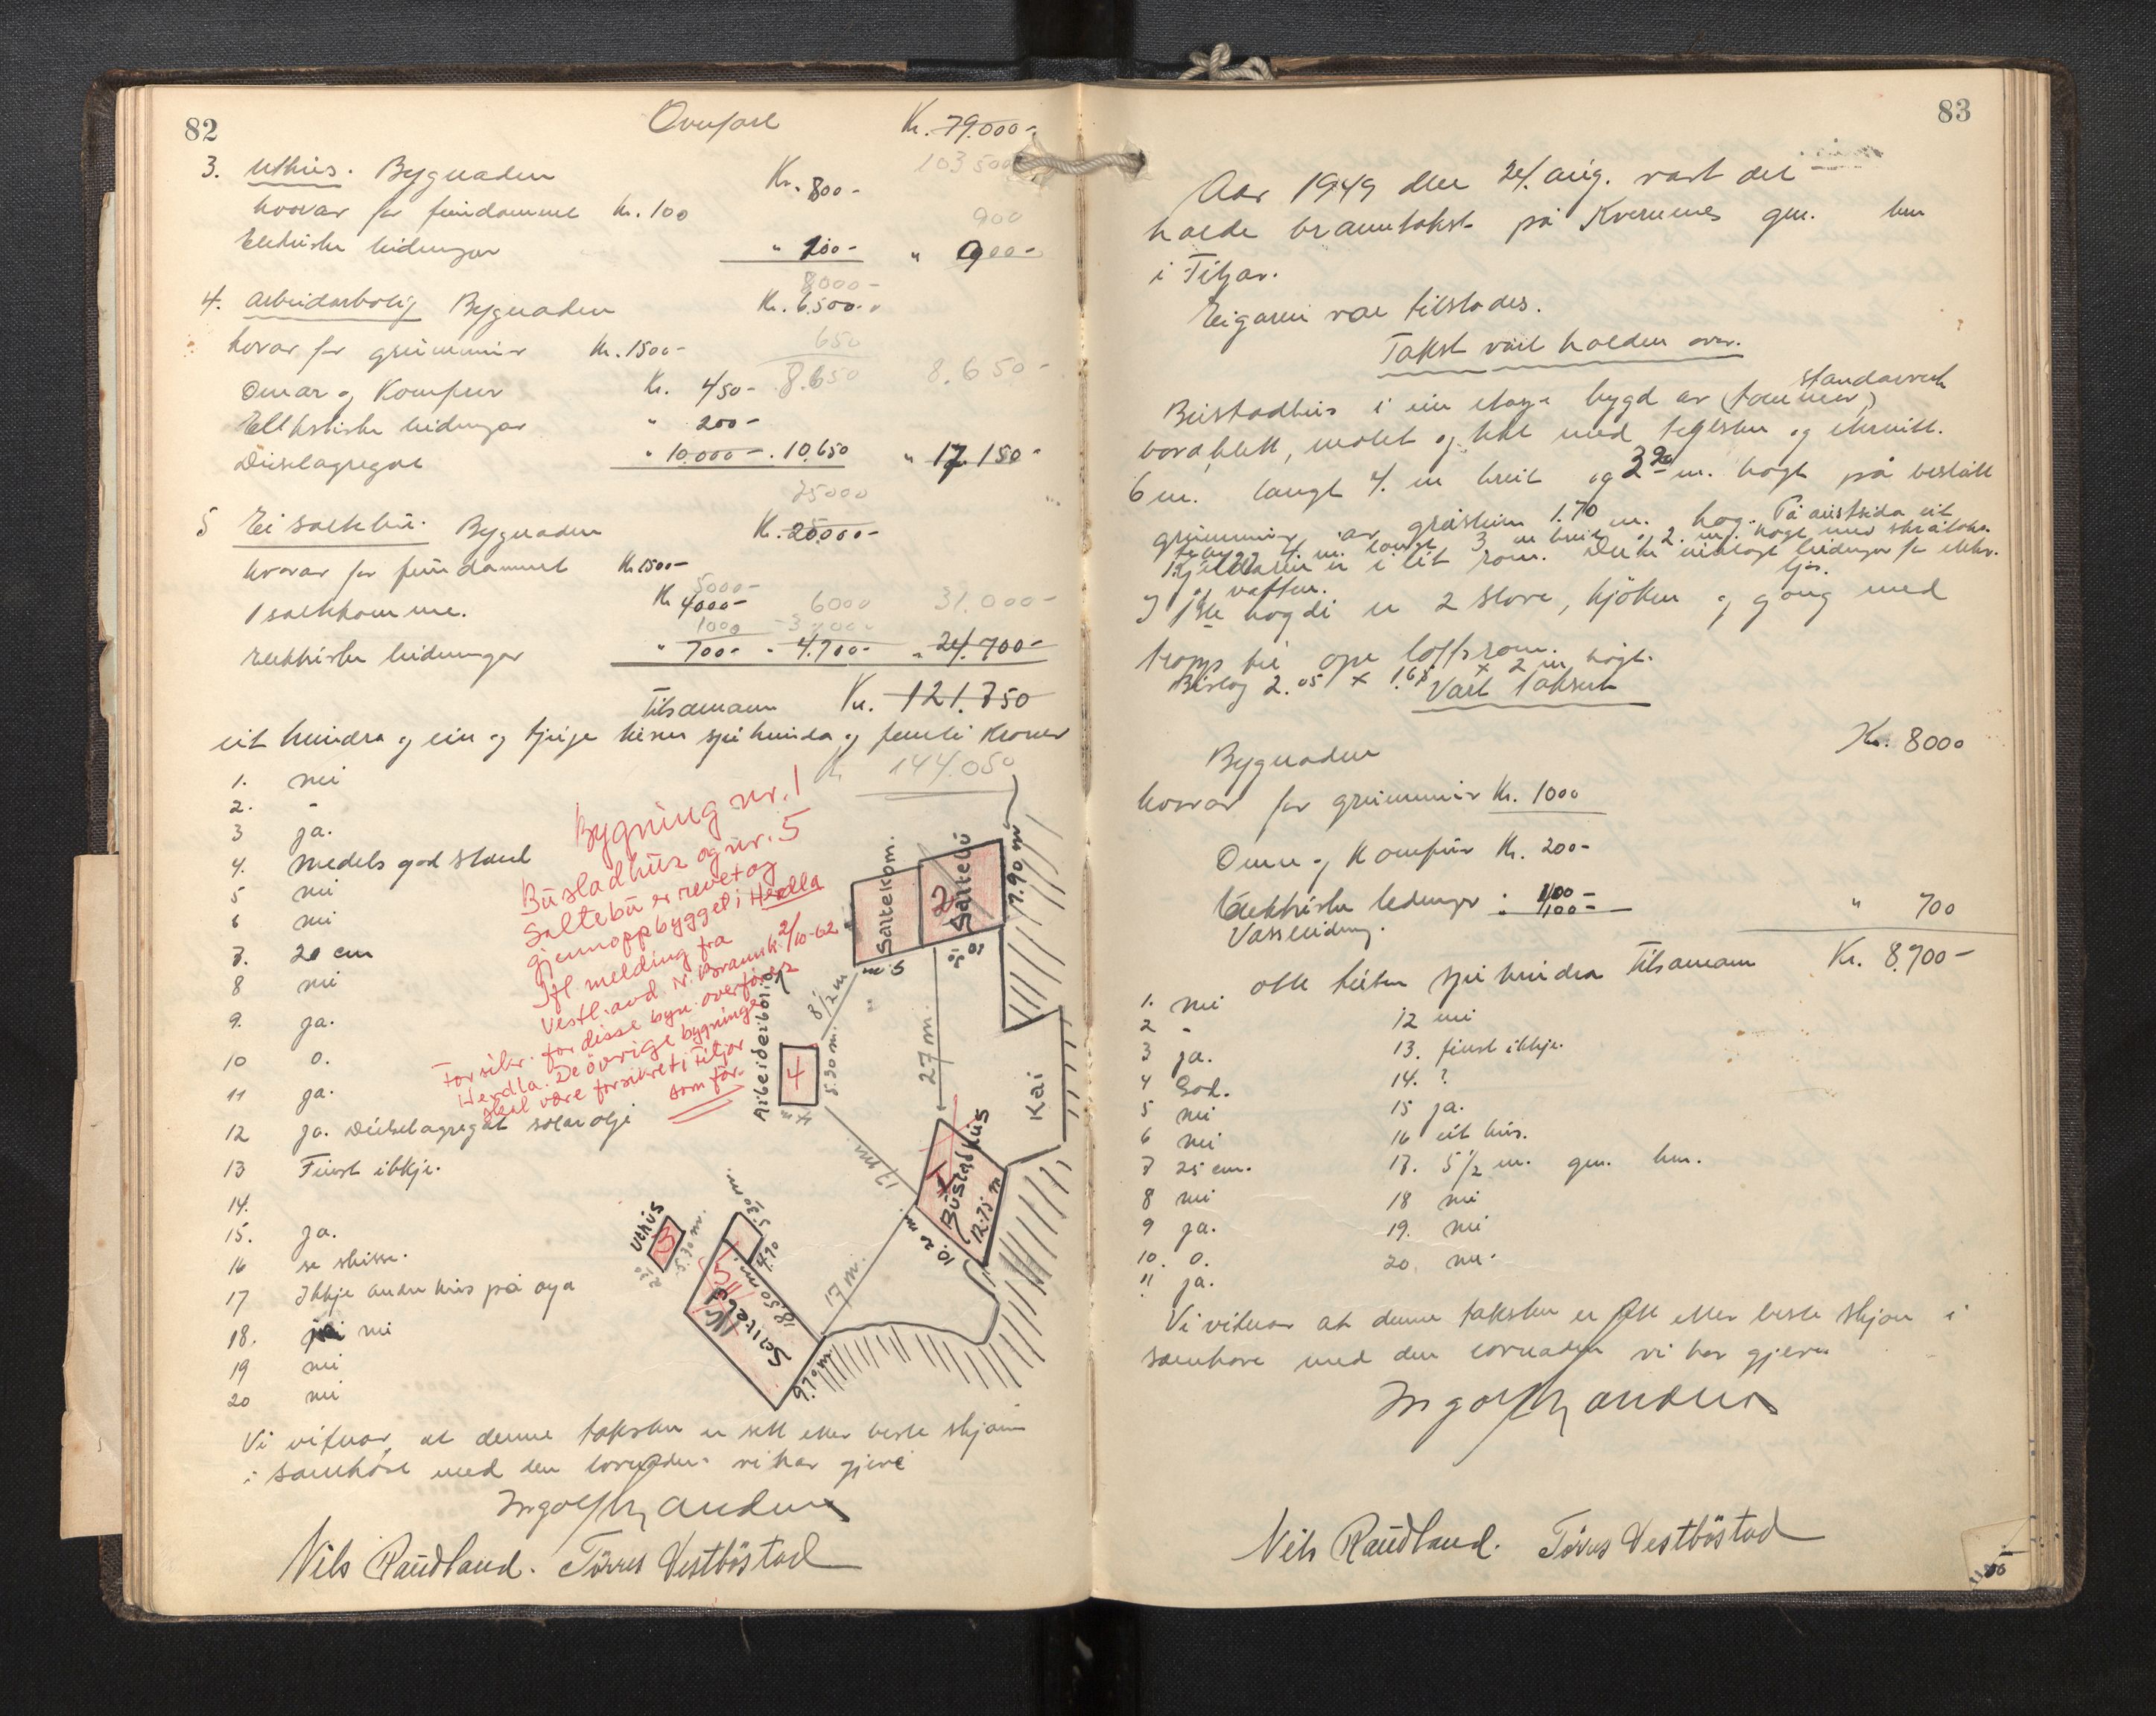 82
Overført Kr. 79.000-
103 500
3. Uthus. Bygnaden Kr. 800-
hvorav for fundamment Kr. 100
900
Elektriske leidningar " 100- " 900-
8000-
4. Arbeidarbolig Bygnaden Kr. 6.500-
hvorav for grunnmur Kr. 1500-
650
Omnar og Komfyr Kr. 450- 8.650 8.650-
Elektriske leidningar " 200-
Dieselagregat " 10.000- . 10.650 " 17.150-
25000
5 Ei saltebu. Bygnaden Kr. 20.000-
hvorav for fundamment Kr. 1500-
5000-
1 saltkomme. Kr 4000- 6000 31.000-
1000
Elektriske leidningar " 700- " 4.700- " 24.700-
Tilsamann Kr. 121.750
eit hundra og ein og tjuge tusen sju hundra og femti Kroner
Kr 144.050
1. nei
2. -
3 ja.
4. Medels god stand
5 nei
6 nei
7. 20 cm
8 nei
9. ja.
10 0.
11 ja.
12 ja. Dieselagregat solarolje
13 Finst ikkje.
14.
15. ja.
16 se skisse.
17 Ikkje andre hus på øya
18. nei
19 nei
20 nei
Bygning nr. 1
Bustadhus og nr. 5
Saltebu er revet og
gjenoppbygget i Herdla
Ifl melding fra
Vestl. avd. N. Brannk. 2/10-62
Forsikr. for disse bygn. overføres
Herdla. De övrige bygninger
skal være forsikret i Fitjar
som før.
Saltekom.
2
Saltebu
7.90 m
5 m
8 1/2 m
27 m.
Arbeiderbolig
4
5.30 m.
4 m
Kai
17 m.
1
Bustadhus
12.75 m
10.20 m.
17 m.
Uthus
3
5.30 m.
2.30
5.30 m.
4.70
5
Saltebu
18.50 m
9.70 m.
Vi vitnar at denne taksten er sett etter beste skjøn
i samhøve med den lovnaden vi har gjeve
Nils Raudland. Törres Vestböstad
83
Aar 1949 den 24. aug. vart det
halde branntakst på Kvernenes gnr. bnr
i Fitjar.
Eigaren var tilstades.
Takst vart halden over.
Bustadhus i ein etasje bygd av (tømmer) standarverk
bordklett, malet og tekt med teglsten og eternitt.
6 m. langt 4. m breit og 3.20 m. høgt på bestått
grunnmur av gråstein 1.70 m. høg. På austsida eit
tilbygg 4. m. langt 3 m breit og 2 m. høgt med skråtak.
Kjellaren er i eit rom. Dette innlagt leidningar for elektr.
ljos.
og vatten.
I 1ste høgdi er 2 stove, kjöken og gang med
trapp til ope loftsrom.
Bislag 2.05 x 1.68 x 2 m høgt.
Vart taksert
Bygnaden Kr. 8000
hvorav for grunnmur Kr. 1000
Omn og Komfur Kr. 200-
Elektriske ledninger : 400-
Vassleidning. 100- " 700
Tilsamann Kr. 8.700-
otte tusen sju hundra
1. nei
2 -
3 ja.
4 God.
5 nei
6 nei
7 25 cm.
8 nei
9 ja.
10. 0.
11 ja.
12 nei
13. finst ikkje.
14. ?
15 ja.
16 eit hus.
17. 5 1/2 m. gnr. bnr.
18 nei
19. nei
20. nei.
Vi vitnar at denne taksten er sett etter beste skjøn i
samhøve med den lovnaden vi har gjeve
Nils Raudland. Törres Vestböstad